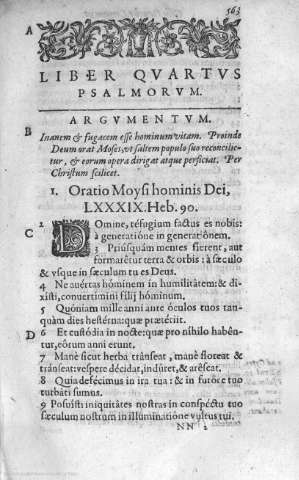 563
A
LIBER QVARTVS
PSALMORVM.
ARGVMENTVM.
B
Inanem & fugacem esse hominum vitam. Proinde
Deum orat Moses, vt saltem populo suo reconcilie-
tur, & eorum opera dirigat atque perficiat. Per
Christum scilicet.
1. Oratio Moysi hominis Dei,
LXXXIX. Heb. 90.
2 DOmine, refugium factus es nobis:
C
à generatióne in generatiónem.
3 Priúsquàm montes fíerent, aut
formarétur terra & orbis: à sæculo
& vsque in sæculum tu es Deus.
4 Ne auértas hóminem in humilitátem: & di-
xísti, convertímini fílij hóminum.
5 Quóniam mille anni ante óculos tuos tan-
quàm dies hestérna: quæ prætériit.
D
6 Et custódia in nocte: quæ pro níhilo habén-
tur, eórum anni erunt.
7 Manè sicut herba tránseat, manè flóreat &
tránseat: vespere décidat, indúret, & aréscat.
8 Quia defécimus in ira tua: & in furóre tuo
turbáti sumus.
9 Posuísti iniquitátes nostras in conspéctu tuo
sæculum nostrum in illuminatióne vultus tui.
NN 2